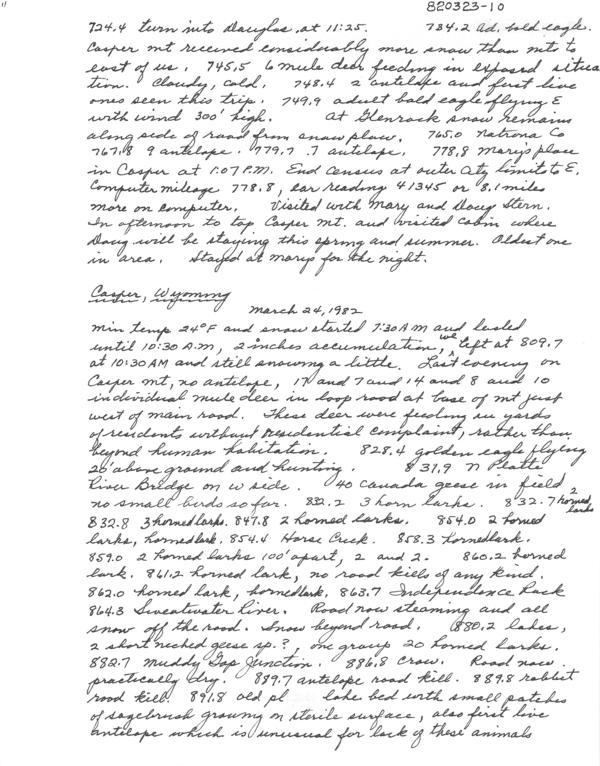 820323-10
724.4 turn into Douglas, at 11:25. 734.2 ad. bald eagle.
Casper mt received considerably more snow than mts to
east of us. 745.5 6 mule deer feeding in exposed situa
tion. Cloudy, cold. 748.4 2 antelope and first live
ones seen this trip. 749.9 adult bald eagle flying E
with wind 300' high. At Glenrock snow remains
along side of road from snow plow. 765.0 Natrona Co
767.8 9 antelope. 779.7 .7 antelope. 778.8 Mary's place
in Casper at 1:07 P.M. End census at outer city limits to E.
Computer mileage 778.8, car reading 41345 or 8.1 miles
more on computer. Visited with Mary and Doug Stern.
In afternoon to top Casper Mt. and visited cabin where
Doug will be staying this spring and summer. Oldest one
in area. Stayed at Marys for the night.
Casper, Wyoming
March 24, 1982
Min temp 24°F and snow started 7:30 AM and lasted
until 10:30 A.M, 2 inches accumulation, we left at 809.7
at 10:30 AM and still snowing a little. Last evening on
Casper Mt, no antelope, 17 and 7 and 14 and 8 and 10
individual mule deer in loop road at base of mt just
west of main road. These deer were feeding in yards
of residents without residential complaint, rather than
beyond human habitation. 828.4 golden eagle flying
20' above ground and hunting. 831.9 N Platte
River Bridge on W side. 40 Canada geese in field
no small birds so far. 832.2 3 horn larks. 832.7 2 horned larks
832.8 3 horned larks. 847.8 2 horned larks. 854.0 2 horned
larks, horned lark. 854.4 Horse Creek. 858.3 horned lark.
859.0 2 horned larks 100' apart, 2 and 2. 860.2 horned
lark. 861.2 horned lark, no road kills of any kind.
862.0 horned lark, horned lark. 863.7 Independence Rock
864.3 Sweatwater River. Road now steaming and all
snow off the road. Snow beyond road. 880.2 lakes,
2 short necked geese sp.?, one group 20 horned larks.
882.7 Muddy Gap Junction. 886.8 Crow. Road now
practically dry. 889.7 antelope road kill. 889.8 rabbit
road kill. 891.8 old pl lake bed with small patches
of sagebrush growing on sterile surface, also first live
antelope which is unusual for lack of these animals